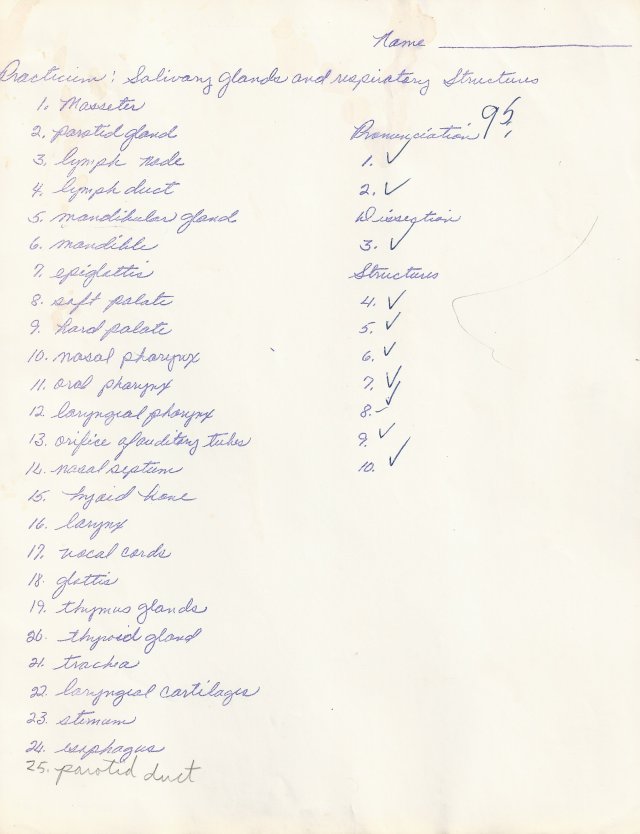 Name
Practicum: Salivary glands and respiratory Structures
1. Masseter
2. parotid gland
3. lymph node
4. lymph duct
5. mandibular gland
6. mandible
7. epiglottis
8. soft palate
9. hard palate
10. nasal pharynx
11. oral pharynx
12. laryngial pharynx
13. orifice of auditory tubes
14. nasal septum
15. hyoid bone
16. larynx
17. vocal cords
18. glottis
19. thymus glands
20. thyroid gland
21. trachea
22. laryngeal cartilages
23. sternum
24. esophagus
25. parotid duct
95
Pronunciation
1. ✓
2. ✓
Dissection
3. ✓
Structures
4. ✓
5. ✓
6. ✓
7. ✓
8. ✓
9. ✓
10. ✓